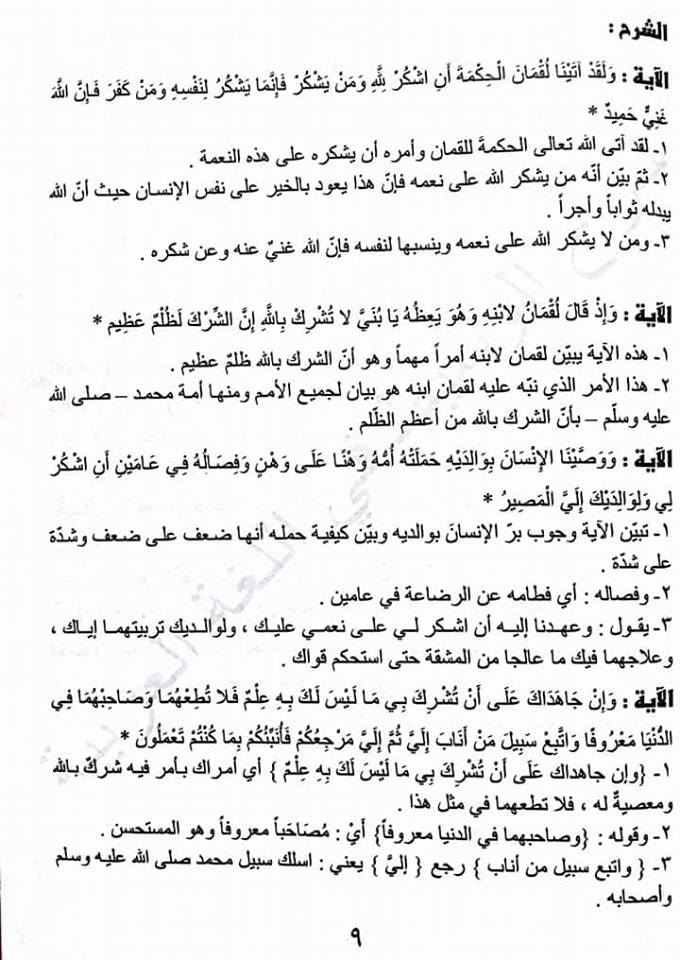 الشرح :
الآية : وَلَقَدْ آتَيْنَا لُقْمَانَ الْحِكْمَةَ أَنِ اشْكُرْ لِلَّهِ وَمَنْ يَشْكُرْ فَإِنَّمَا يَشْكُرُ لِنَفْسِهِ وَمَنْ كَفَرَ فَإِنَّ اللَّهَ
غَنِيٌّ حَمِيدٌ *
١- لقد آتى الله تعالى الحكمةَ للقمان وأمره أن يشكره على هذه النعمة .
٢- ثمّ بيّن أنّه من يشكر الله على نعمه فإنّ هذا يعود بالخير على نفس الإنسان حيث أنّ الله
يبدله ثواباً وأجراً .
٣- ومن لا يشكر الله على نعمه وينسبها لنفسه فإنّ الله غنيٌ عنه وعن شكره .
الآية : وَإِذْ قَالَ لُقْمَانُ لابْنِهِ وَهُوَ يَعِظُهُ يَا بُنَيَّ لا تُشْرِكْ بِاللَّهِ إِنَّ الشِّرْكَ لَظُلْمٌ عَظِيم *
١- هذه الآية يبيّن لقمان لابنه أمراً مهماً وهو أنّ الشرك بالله ظلمٌ عظيم .
٢- هذا الأمر الذي نبّه عليه لقمان ابنه هو بيان لجميع الأمم ومنها أمة محمد – صلى الله
عليه وسلّم – بأنّ الشرك بالله من أعظم الظّلم .
الآية : وَوَصَّيْنَا الإِنْسَانَ بِوَالِدَيْهِ حَمَلَتْهُ أُمُّهُ وَهْنًا عَلَى وَهْنٍ وَفِصَالُهُ فِي عَامَيْنِ أَنِ اشْكُرْ
لِي وَلِوَالِدَيْكَ إِلَيَّ الْمَصِيرُ *
١- تبيّن الآية وجوب برّ الإنسانَ بوالديه وبيّن كيفية حمله أنها ضعف على ضعف وشدّة
على شدّة .
٢- وفصاله : أي فطامه عن الرضاعة في عامين .
٣- يقول : وعهدنا إليه أن اشكر لي على نعمي عليك ، ولوالديك تربيتهما إياك ،
وعلاجهما فيك ما عالجا من المشقة حتى استحكم قواك .
الآية : وَإِنْ جَاهَدَاكَ عَلَى أَنْ تُشْرِكَ بِي مَا لَيْسَ لَكَ بِهِ عِلْمٌ فَلا تُطِعْهُمَا وَصَاحِبْهُمَا فِي
الدُّنْيَا مَعْرُوفًا وَاتَّبِعْ سَبِيلَ مَنْ أَنَابَ إِلَيَّ ثُمَّ إِلَيَّ مَرْجِعُكُمْ فَأُنَبِّئُكُمْ بِمَا كُنْتُمْ تَعْمَلُونَ *
١- {وإن جاهداك عَلَى أَنْ تُشْرِكَ بِي مَا لَيْسَ لَكَ بِهِ عِلْمٌ } أي أمراك بأمر فيه شركٌ بالله
ومعصيةٌ له ، فلا تطعهما في مثل هذا .
٢- وقوله : {وصاحبهما في الدنيا معروفاً} أيْ : مُصَاحَباً معروفاً وهو المستحسن .
٣- { واتبع سبيل من أناب } رجع { إليَّ } يعني : اسلك سبيل محمد صلى الله عليه وسلم
وأصحابه .
٩